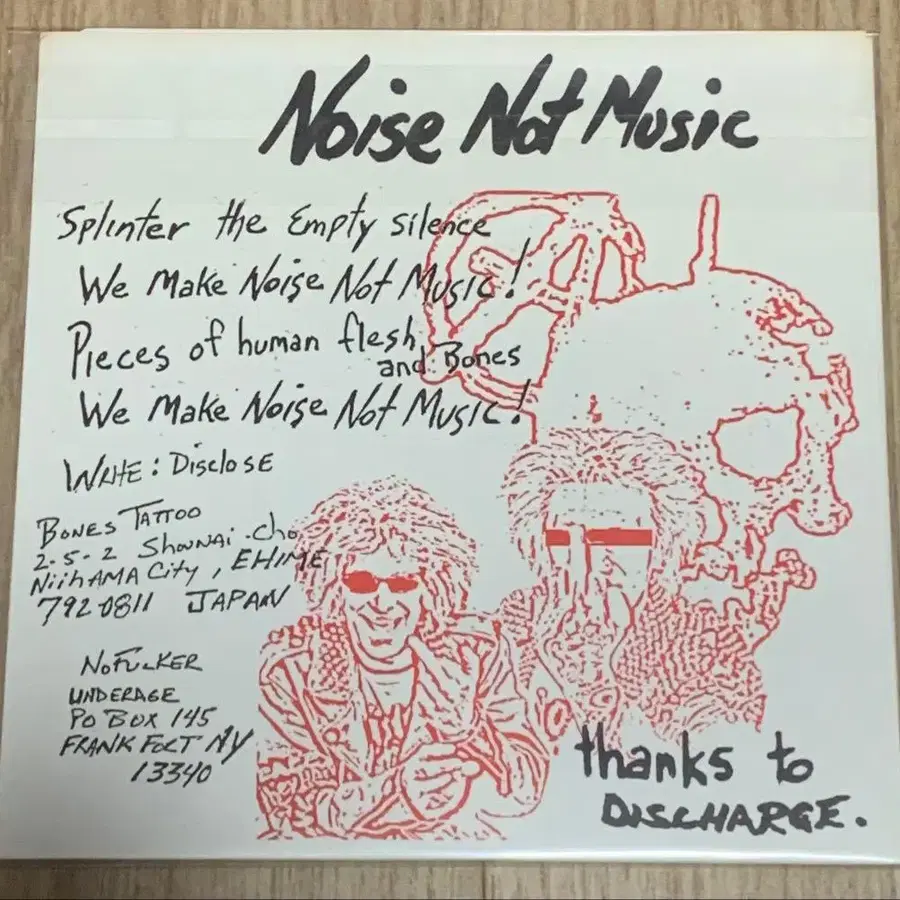 Noise Not Music
Splinter the Empty silence
We Make Noise Not Music!
Pieces of human flesh
and Bones
We Make Noise Not Music!
Write: Disclose
Bones Tattoo
2-5-2 Shounai-Cho
Niihama City, EHIME
792-0811 JAPAN
NoFucker
UNDERAGE
PO Box 145
FRANKFORT NY
13340
thanks to
DISCHARGE.